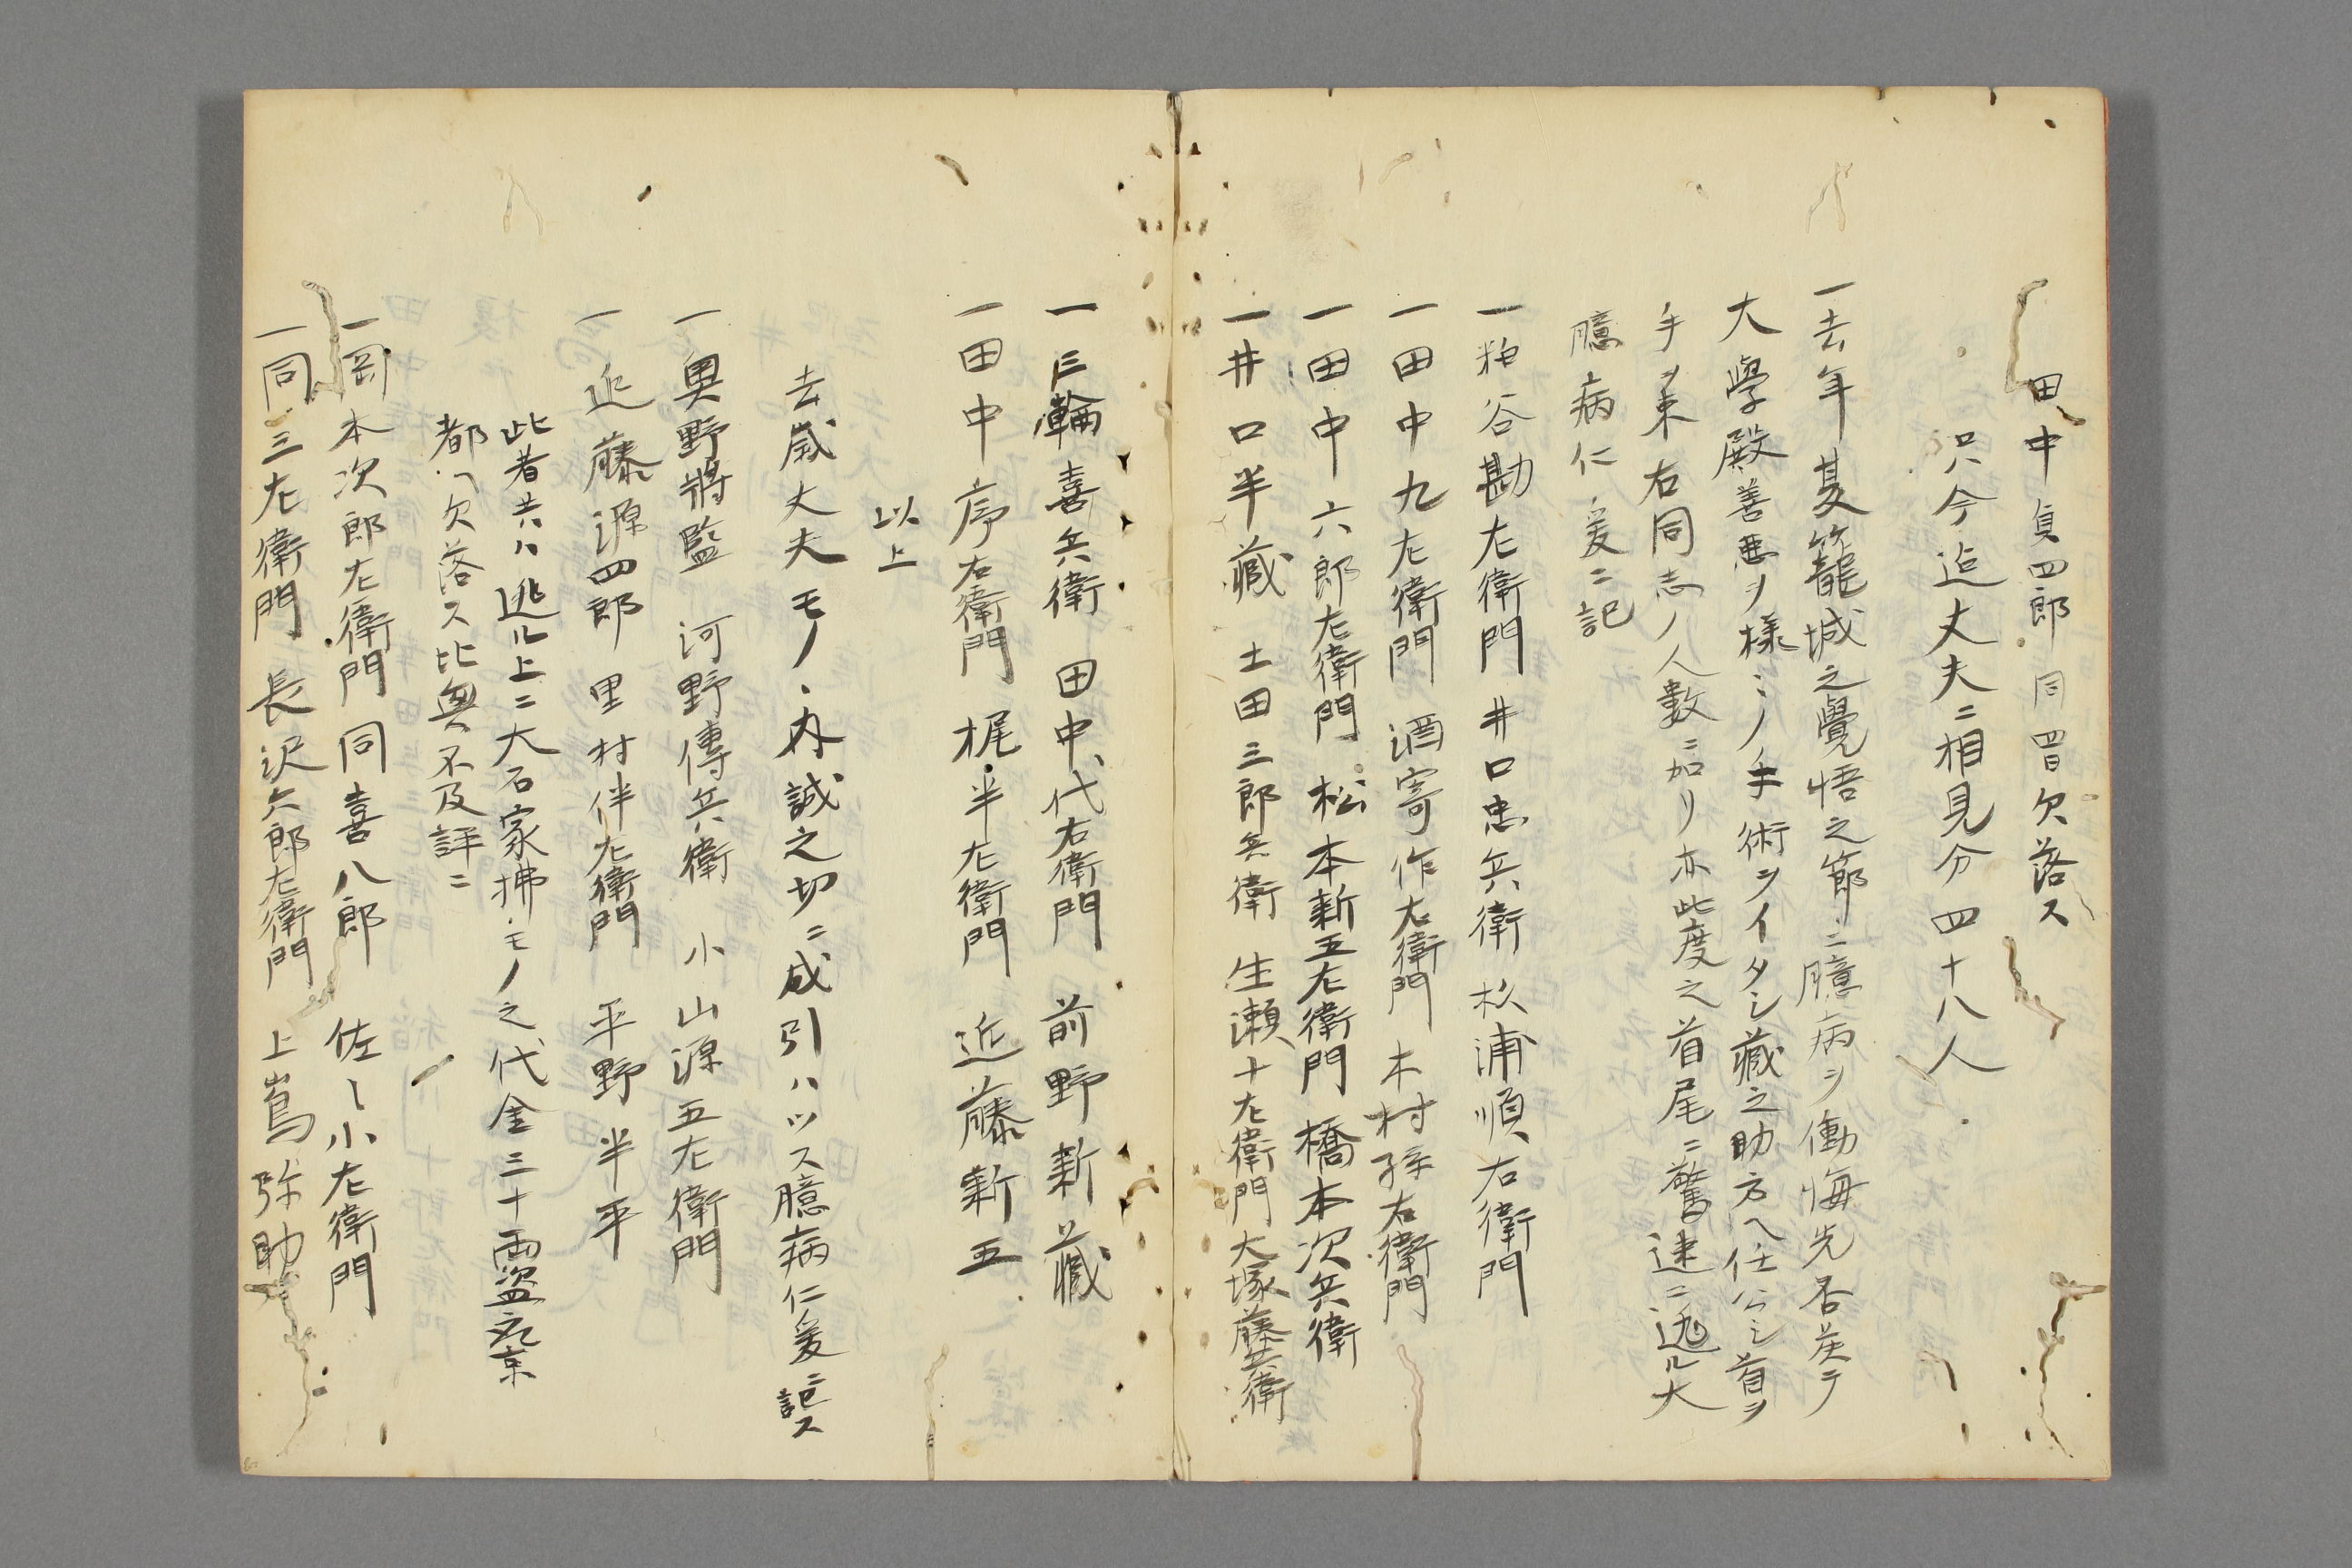 田中貞四郎 同四日欠落ス
只今迄丈夫ニ相見分四十八人
一去年夏籠城之覺悟之節ニ臆病ヲ働悔先
大學殿善悪ヲ様ミノ手術ヲイタシ藏之助方へ仕 首ヲ
手ヲ束右同志ノ人數ニ加リ亦此度之首尾ニ驚速ニ逃ル大
臆病仁爰ニ記
一粕谷勘左衛門 井口忠兵衛 杉浦順右衛門
一田中九左衛門 酒寄作右衛門 木村孫右衛門
一田中六郎左衛門 松本新五左衛門 橋本次兵衛
一井口半藏 土田三郎兵衛 生瀬十左衛門 大塚藤兵衛
一三輪喜兵衛 田中代右衛門 前野新藏
一田中序右衛門 梶半左衛門 近藤新五
以上
去歳丈夫モノ内誠之切ニ成引ハツス臆病仁爰ニ記ス
一奥野將監 河野傳兵衛 小山源五左衛門
一近藤源四郎 里村伴左衛門 平野半平
此者共ハ逃ル上ニ大石家拂モノ之代金三十両盗京
都へ欠落ス比興不及評ニ
一岡本次郎左衛門 同喜八郎 佐々小左衛門
一同三左衛門 長沢六郎左衛門 上嶌弥助